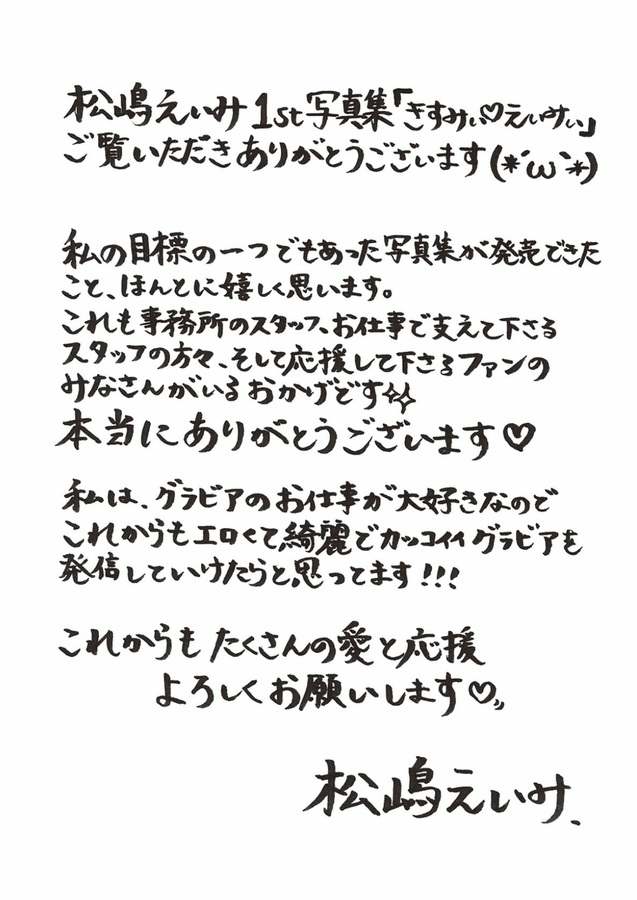 松嶋えいみ1st写真集「きすみぃ♡えいみぃ」
ご覧いただきありがとうございます(*´ω`*)
私の目標の一つでもあった写真集が発売できた
こと、ほんとに嬉しく思います。
これも事務所のスタッフ、お仕事で支えて下さる
スタッフの方々、そして応援して下さるファンの
みなさんがいるおかげです✨
本当にありがとうございます♡
私は、グラビアのお仕事が大好きなので
これからもエロくて綺麗でカッコイイグラビアを
発信していけたらと思ってます!!!
これからもたくさんの愛と応援
よろしくお願いします♡〃
松嶋えいみ、